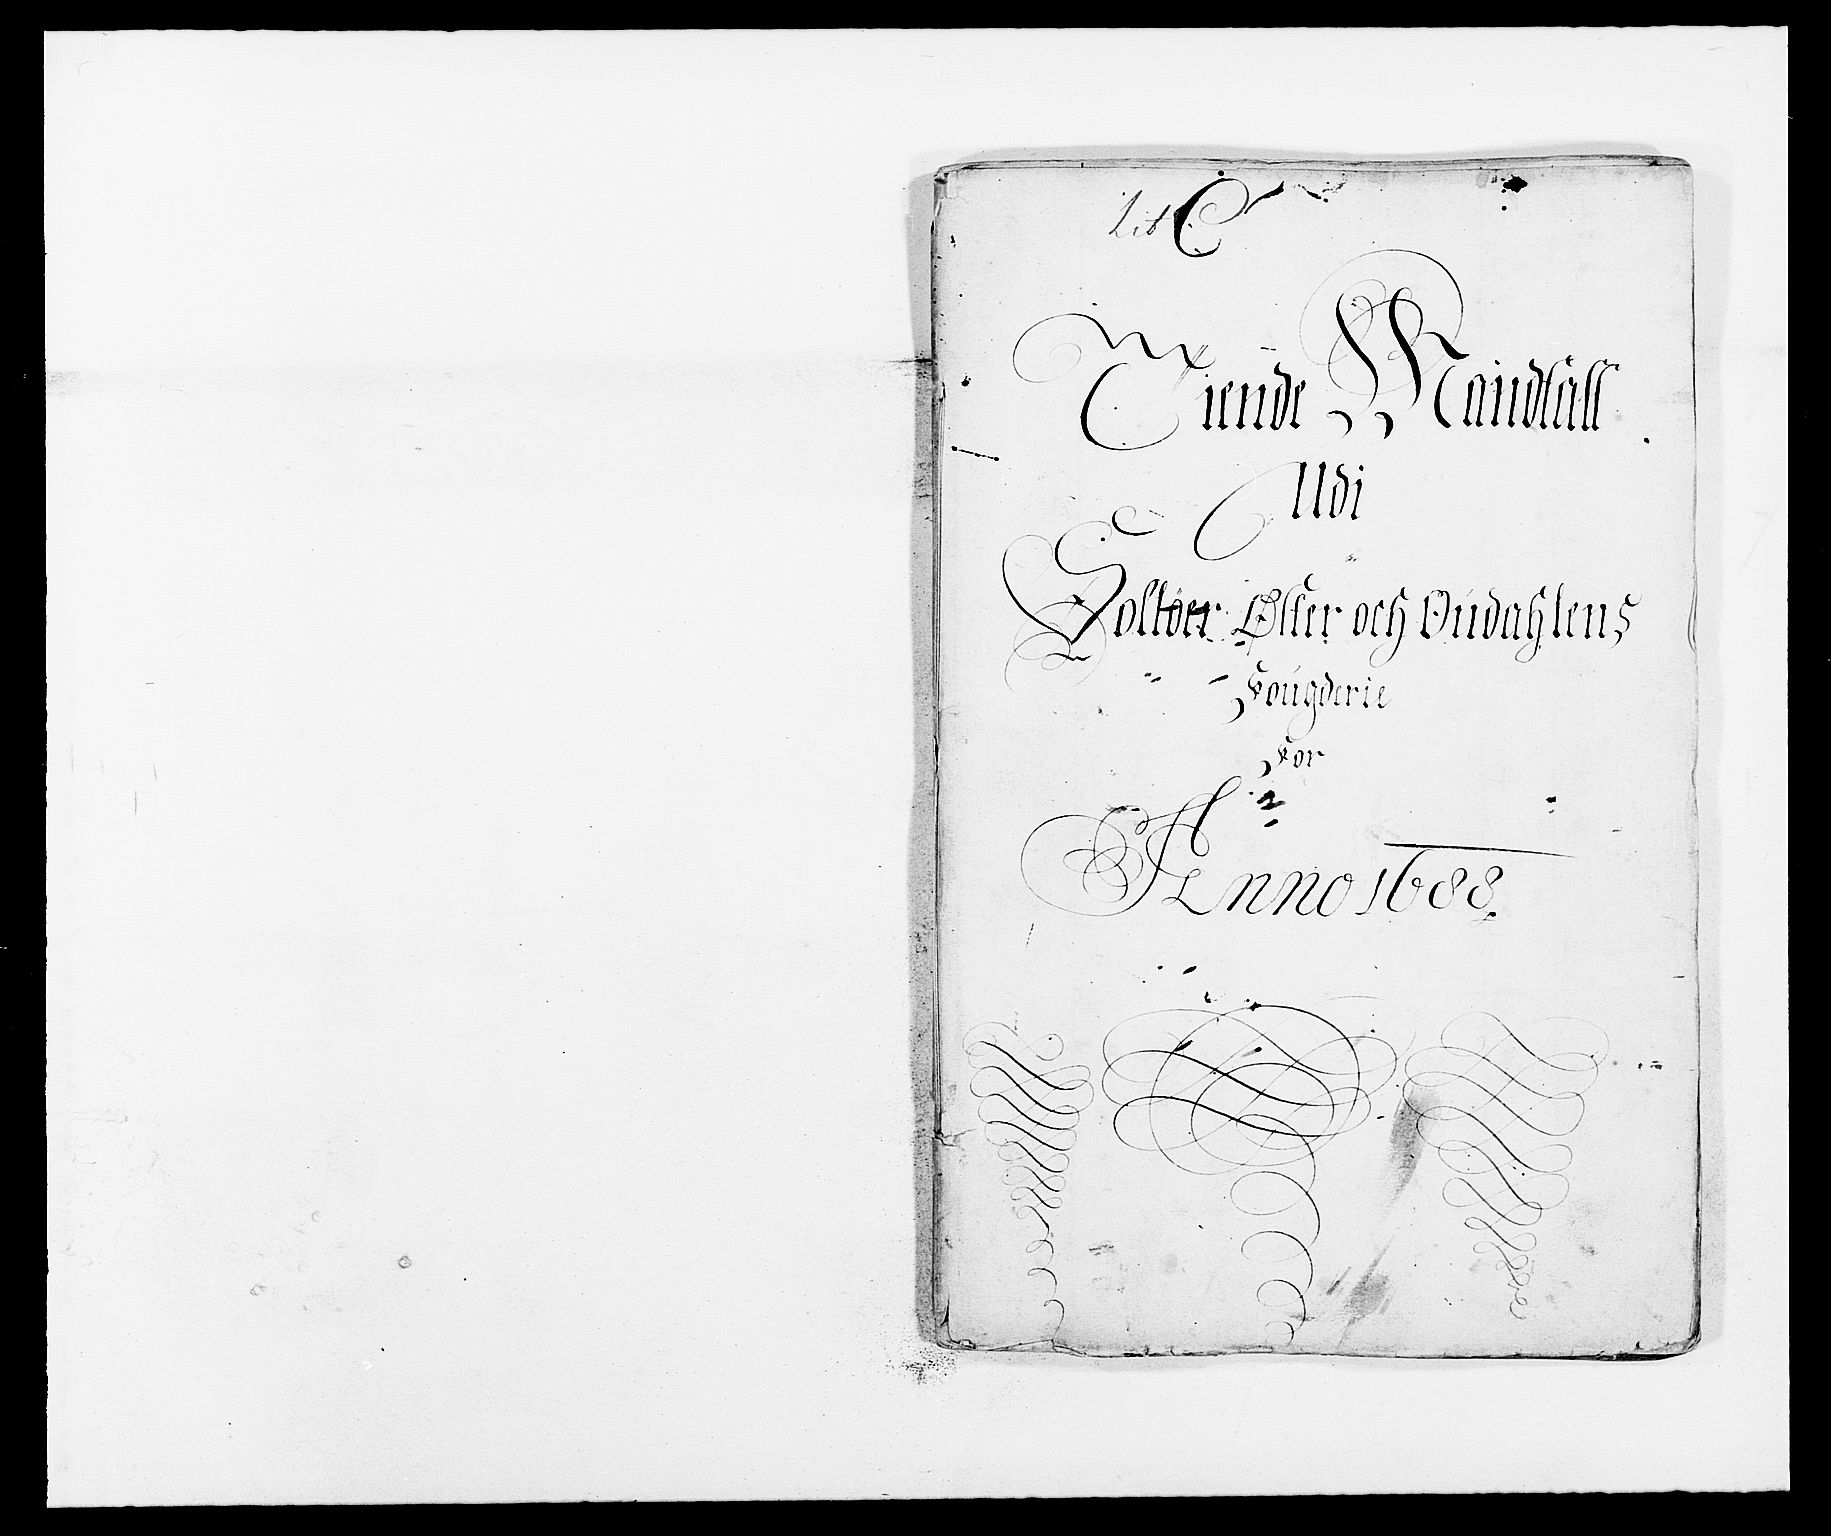 Lit C
Tiende Mandtall
Udi
Soløer Øster och Oudahlens
Fougderie
For
Anno 1688